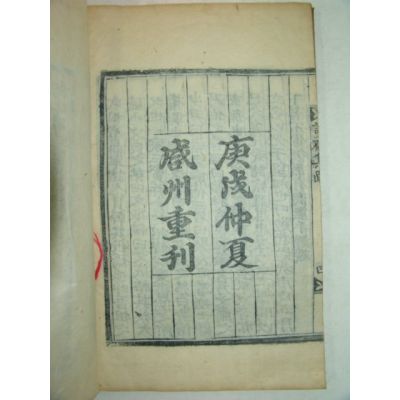 庚戌仲夏
咸州重刊